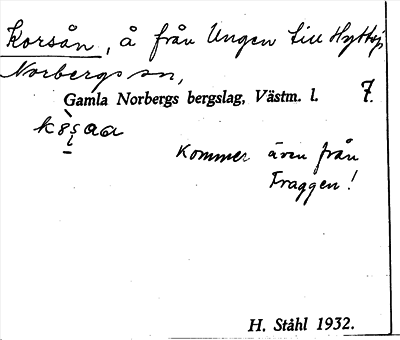 Korsån, å från Ungen till Hyttsjö
Norbergs sn,
Gamla Norbergs bergslag, Västm. l. 7.
Kommer även från
Fraggen!
H. Ståhl 1932.